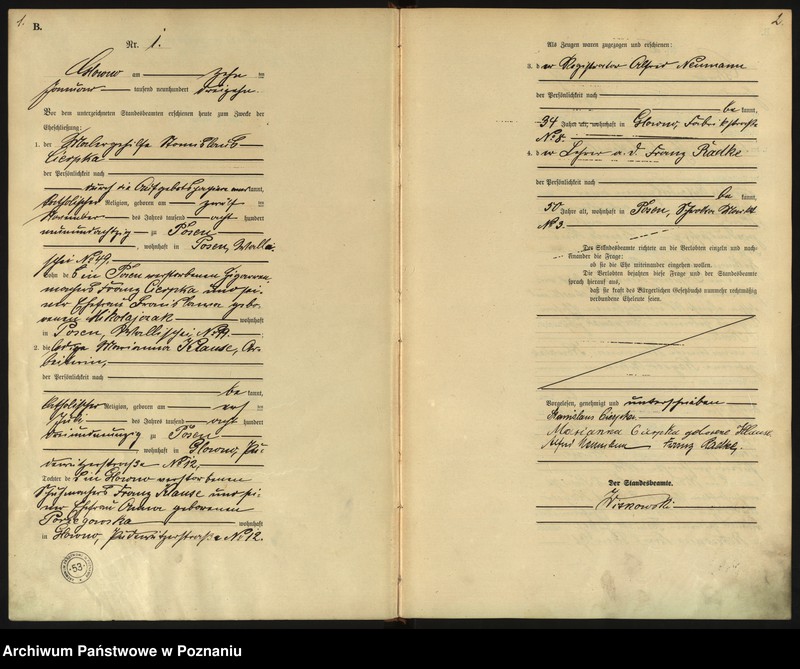 1.
B.
Nr. 1.
Glowno am zehn ten
Januar tausend neunhundert dreizehn.
Vor dem unterzeichneten Standesbeamten erschienen heute zum Zwecke der
Eheschließung:
1. der Malergehilfe Stanislaus
Cierpka
der Persönlichkeit nach
durch die Aufgebotspapiere anerkannt,
katholischer Religion, geboren am zwölf ten
November des Jahres tausend acht hundert
neunundachtzig zu Posen
, wohnhaft in Posen, Walli-
schei No 49,
Sohn des in Posen verstorbenen Zigarren-
machers Franz Cierpka und sei-
ner Ehefrau Branislawa gebo-
renen Mikolajczak wohnhaft
in Posen, Wallischei No
2. die ledige Marianna Klause, Ar-
beiterin,
der Persönlichkeit nach
be kannt,
katholischer Religion, geboren am
Juli des Jahres tausend acht hundert
dreiundneunzig zu Posen
, wohnhaft in Glowno, Pu-
dewitzerstraße No 12,
Tochter des in Glowno verstorbenen
Schuhmachers Franz Klause und sei-
ner Ehefrau Anna geborenen
wohnhaft
in Glowno, Pudewitzerstraße No 12.
53
2.
Als Zeugen waren zugezogen und erschienen:
3. der Registrator Alfred Neumann
der Persönlichkeit nach
be kannt,
34 Jahre alt, wohnhaft in Glowno, Fabrikstraße
No 8.
4. der Lehrer a. D. Franz Radtke
der Persönlichkeit nach
be kannt,
50 Jahre alt, wohnhaft in Posen, Markt
No 3.
Der Standesbeamte richtete an die Verlobten einzeln und nach-
einander die Frage:
ob sie die Ehe miteinander eingehen wollen.
Die Verlobten bejahten diese Frage und der Standesbeamte
sprach hierauf aus,
daß sie kraft des Bürgerlichen Gesetzbuchs nunmehr rechtmäßig
verbundene Eheleute seien.
Vorgelesen, genehmigt und unterschrieben
Stanislaus Cierpka.
Marianna Cierpka geborene Klause
Alfred Neumann Franz Radtke,
Der Standesbeamte.
Wiskowski
Archiwum Państwowe w Poznaniu